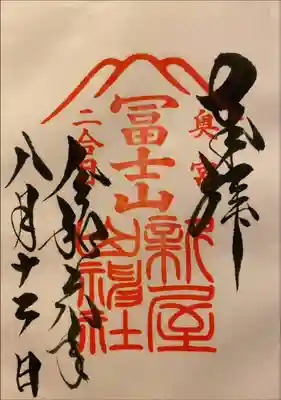 奉拝
奥宮
冨士山
二合目
新屋
山神社
令和六年
八月十二日